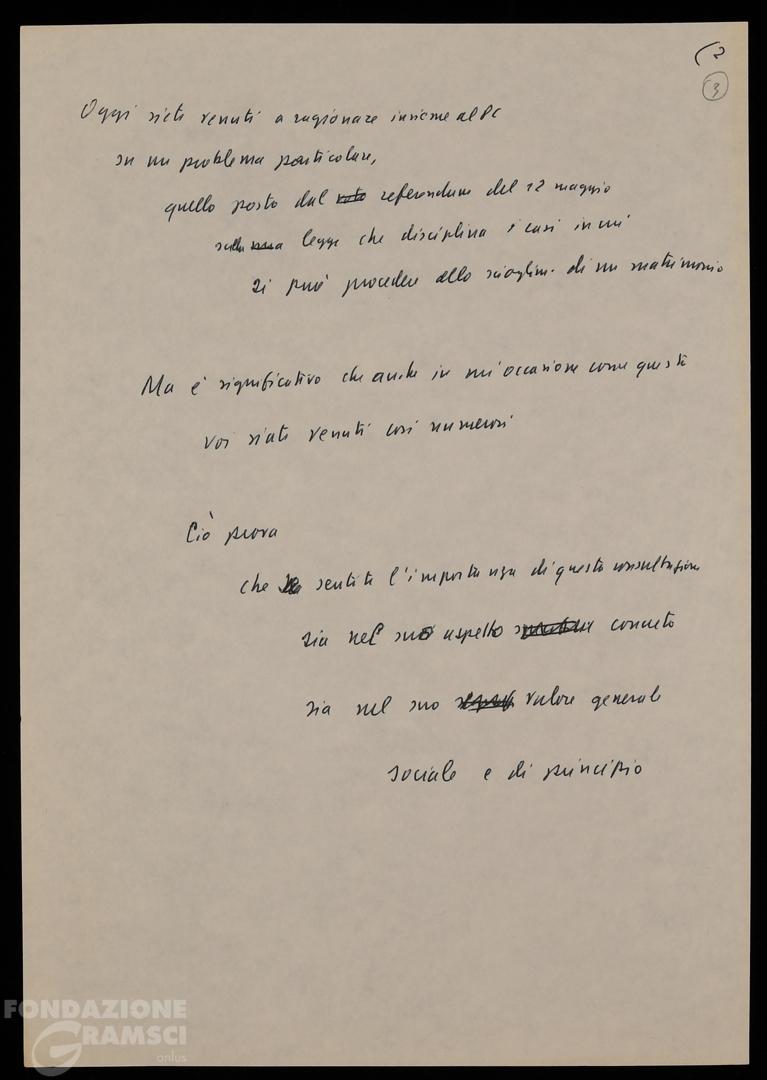 (2
3
Oggi siete venuti a ragionare insieme al PC
su un problema particolare,
quello posto dal voto referendum del 12 maggio
sulla legge che disciplina i casi in cui
si può procedere allo scioglim. di un matrimonio
Ma è significativo che anche in un'occasione come questa
voi siate venuti così numerosi
Ciò prova
che sentite l'importanza di questa consultazione
sia nel suo aspetto concreto
sia nel suo valore generale
sociale e di principio
FONDAZIONE
GRAMSCI
onlus